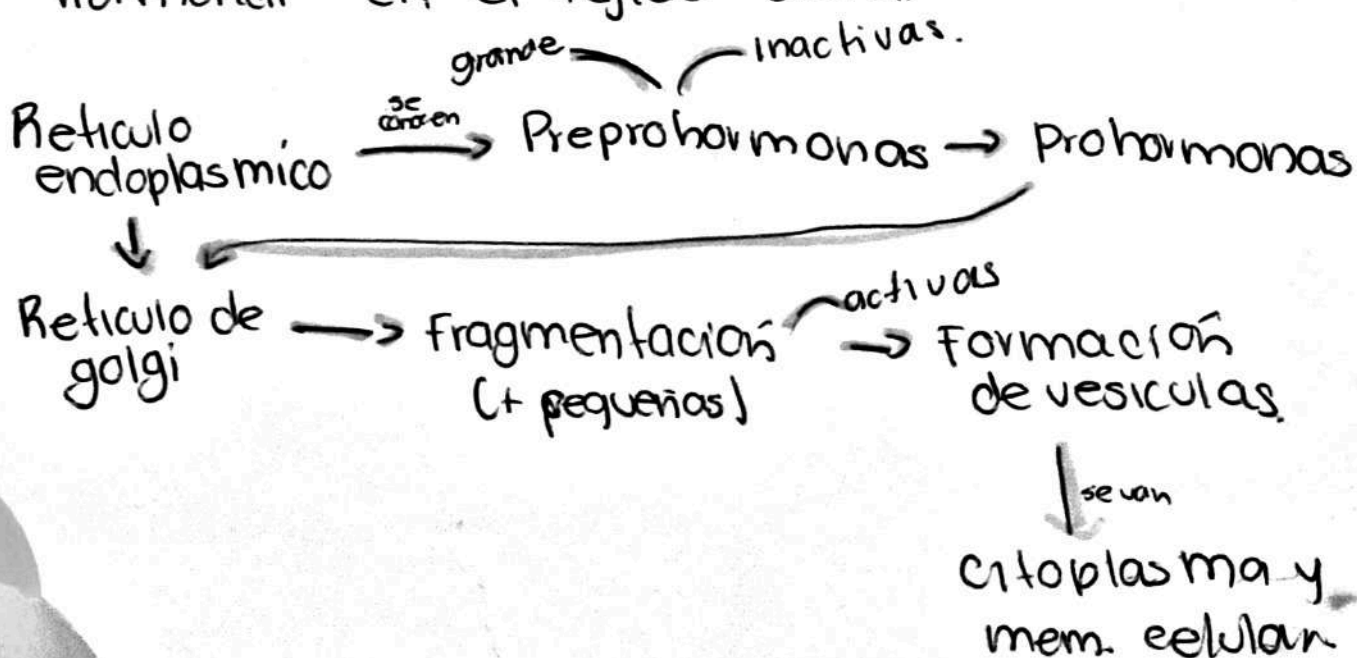 en el
grande inactivas.
Reticulo
endoplasmico
se
Preprohormonas → Prohormonas
Reticulo de
golgi
Fragmentación
(+ pequeñas)
activas
Formación
de vesiculas.
se van
citoplasma y
mem. celular